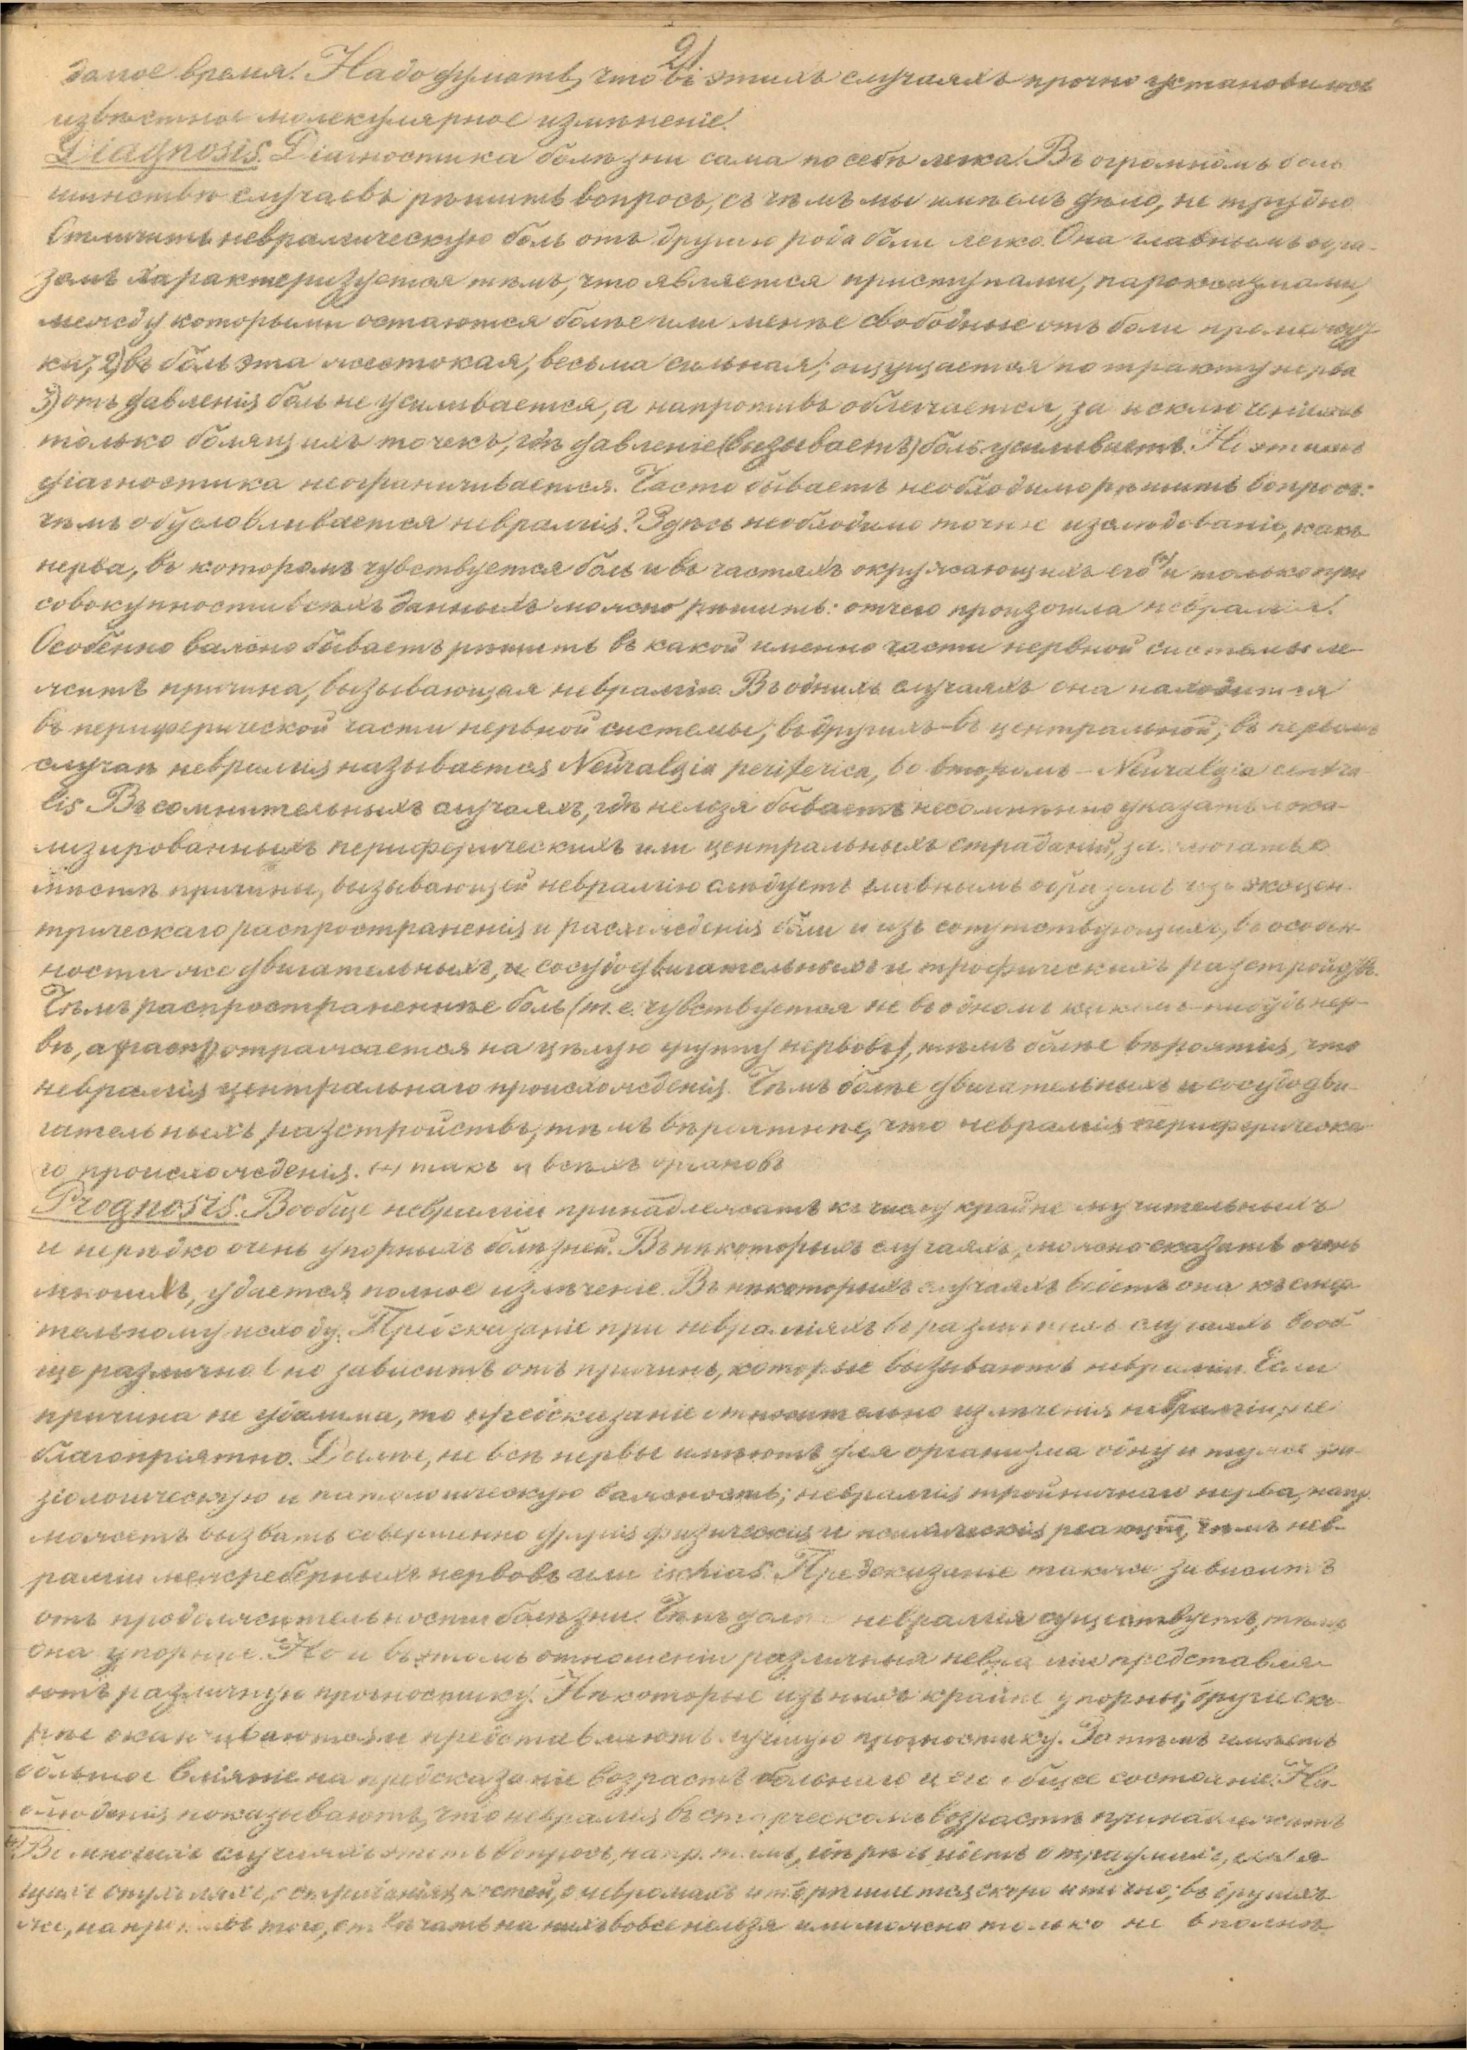 21
долгое время. Надо думать, что въ этихъ случаяхъ прочно установилось
извѣстное молекулярное измѣненіе.
Diagnosis. Діагностика болѣзни сама по себѣ легка. Въ огромномъ боль
шинствѣ случаевъ рѣшить вопросъ, съ чѣмъ мы имѣемъ дѣло, не трудно.
Отличить невралгическую боль отъ другого рода боли легко. Она главнымъ обра-
зомъ характеризуется тѣмъ, что является приступами, пароксизмами,
между которыми остаются болѣе или менѣе свободные отъ боли промежут
ки; 2) въ боль эта жестокая, весьма сильная; ощущается по тракту нерва
3) отъ давленія боль не усиливается, а напротивъ облегчается, за исключеніемъ
только болящихъ точекъ, гдѣ давленіе (вызываетъ) боль усиливаетъ. Но этимъ
діагностика неограничивается. Часто бываетъ необходимо рѣшить вопросъ:
чѣмъ обусловливается невралгія? Здѣсь необходимо точное изслѣдованіе, какъ
нерва, въ которомъ чувствуется боль и въ частяхъ окружающихъ его (+) и только при
совокупности всѣхъ данныхъ можно рѣшить: отчего произошла невралгія.
Особенно важно бываетъ рѣшить въ какой именно части нервной системы ле-
житъ причина, вызывающая невралгію. Въ однихъ случаяхъ она находится
въ периферической части нервной системы; въ другихъ – въ центральной; въ первомъ
случаѣ невралгія называется Neuralgia periferica, во второмъ – Neuralgia centra-
lis. Въ сомнительныхъ случаяхъ, гдѣ нельзя бываетъ несомнѣнно указать лока-
лизированныхъ периферическихъ или центральныхъ страданій, о
мѣстѣ причины, вызывающей невралгію слѣдуетъ главнымъ образомъ изъ эксцен-
трическаго распространенія и расхожденія боли и изъ сопутствующихъ, въ особен-
ности же двигательныхъ, и сосудодвигательныхъ и трофическихъ разстройствъ.
Чѣмъ распространеннѣе боль (т. е. чувствуется не въ одномъ какомъ-нибудь нер-
вѣ, а отражается на цѣлую группу нервовъ), тѣмъ болѣе вѣроятія, что
невралгія центральнаго происхожденія. Чѣмъ болѣе двигательныхъ и сосудодви-
гательныхъ разстройствъ, тѣмъ вѣроятнѣе, что невралгія периферическа-
го происхожденія. (+) такъ и всѣхъ органовъ
Prognosis. Вообще невралгіи принадлежатъ къ числу крайне мучительныхъ
и нерѣдко очень упорныхъ болѣзней. Въ нѣкоторыхъ случаяхъ, можно сказать очень
многихъ, удается полное излѣченіе. Въ нѣкоторыхъ случаяхъ ведетъ она къ смер-
тельному исходу. Предсказаніе при невралгіяхъ въ различныхъ случаяхъ вооб
ще различно и зависитъ отъ причинъ, которые вызываютъ невралгіи. Если
причина не удалима, то предсказаніе относительно излѣченія невралгіи, не
благопріятно. Далѣе, не всѣ нервы имѣютъ для организма одну и туже фи-
зіологическую и патологическую важность; невралгія тройничнаго нерва, напр.
можетъ вызвать совершенно другія физическія и психическія реакціи, чѣмъ нев-
ралгіи межреберныхъ нервовъ или ischias. Предсказаніе также зависитъ
отъ продолжительности болѣзни. Чѣмъ долѣе невралгія существуетъ, тѣмъ
она упорнѣе. Но и въ этомъ отношеніи различныя невралгіи представля-
ютъ различную прогностику. Нѣкоторые изъ нихъ крайне упорны; другіе ско-
рѣе оканчиваются и представляютъ лучшую прогностику. Затѣмъ имѣетъ
большое вліяніе на предсказаніе возрастъ больного и его общее состояніе. На-
блюденія показываютъ, что невралгія въ старческомъ возрастѣ принадлежитъ
(+) Во многихъ случаяхъ этотъ вопросъ, напр. тамъ, гдѣ рѣчь идетъ о травмахъ,
опухоляхъ, о страданіяхъ костей, о невромахъ и т.п. рѣшается скоро и точно; въ другихъ
же, напротивъ того, отвѣчать на нихъ вовсе нельзя или можно только не вполнѣ